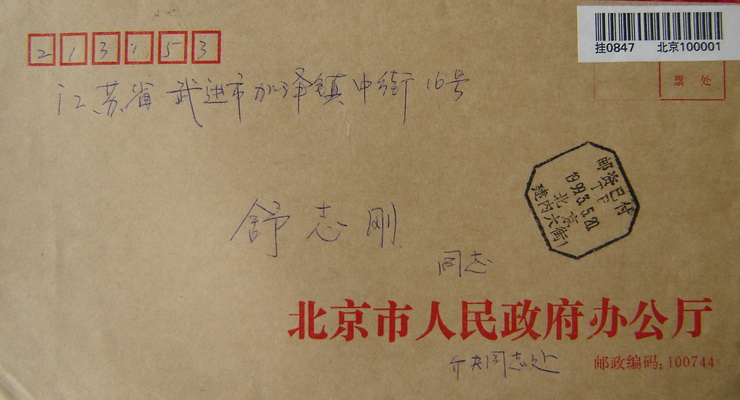 213153
挂0847 北京100001
票处
江苏省武进市加泽镇中街16号
邮资已付
1999.5.20
北京
建内大街1
舒志刚
同志
北京市人民政府办公厅
邮政编码:100744